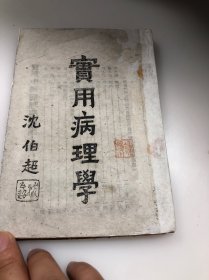 實用病理學
沈伯超